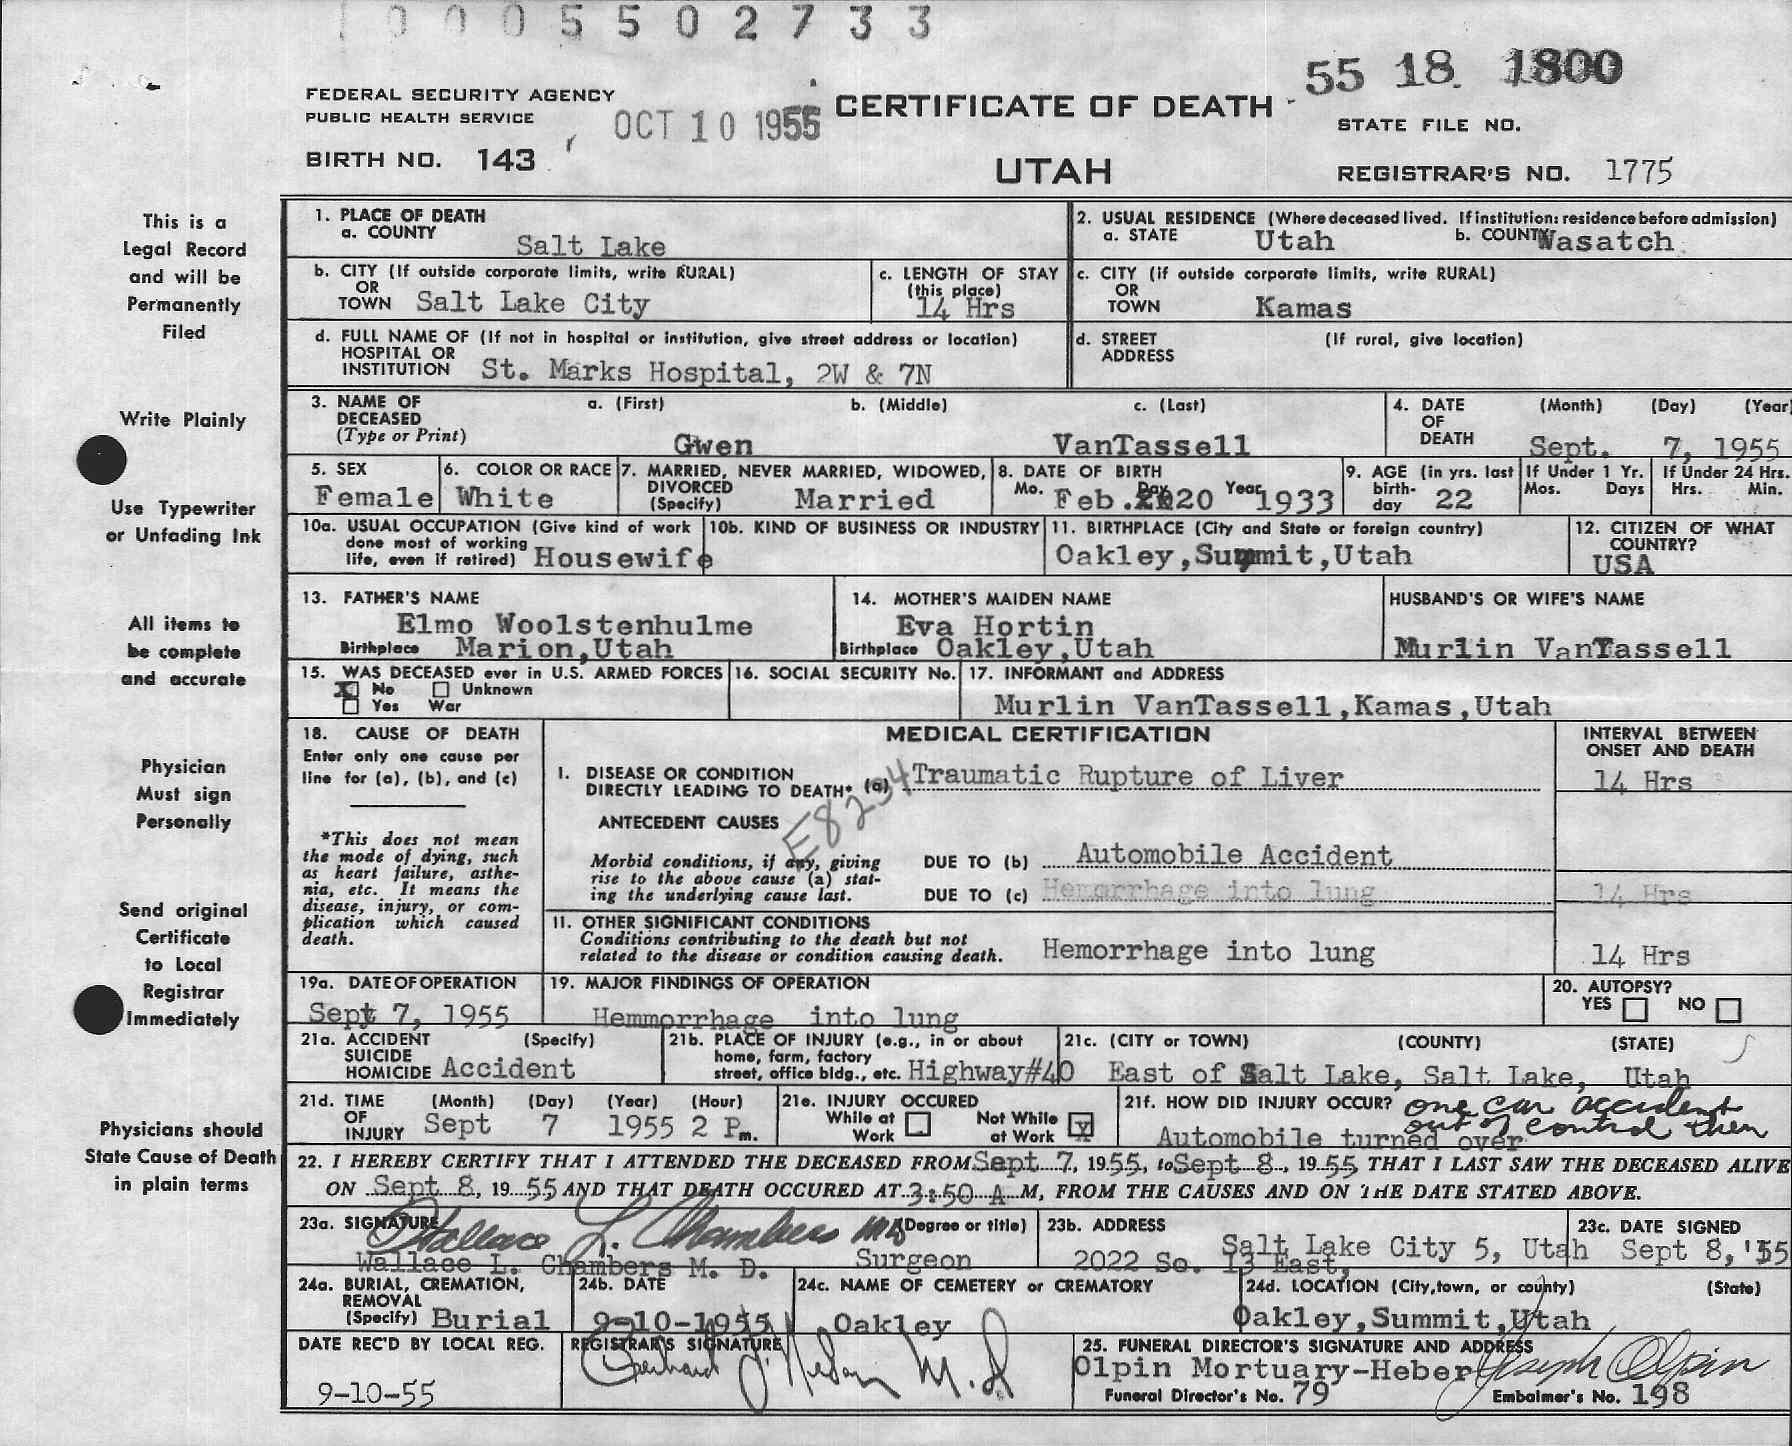 1 0 0 0 5 5 0 2 7 3 3
55 18 1800
FEDERAL SECURITY AGENCY
PUBLIC HEALTH SERVICE
OCT 10 1955
CERTIFICATE OF DEATH
STATE FILE NO.
BIRTH NO. 143
UTAH
REGISTRAR'S NO. 1775
This is a
Legal Record
and will be
Permanently
Filed
Write Plainly
Use Typewriter
or Unfading Ink
All items to
be complete
and accurate
Physician
Must sign
Personally
Send original
Certificate
to Local
Registrar
Immediately
Physicians should
State Cause of Death
in plain terms
1. PLACE OF DEATH
a. COUNTY
Salt Lake
2. USUAL RESIDENCE (Where deceased lived. If institution: residence before admission)
a. STATE Utah b. COUNTY Wasatch
b. CITY (If outside corporate limits, write RURAL)
OR
TOWN Salt Lake City
c. LENGTH OF STAY
(this place)
14 Hrs
c. CITY (if outside corporate limits, write RURAL)
OR
TOWN Kamas
d. FULL NAME OF (If not in hospital or institution, give street address or location)
HOSPITAL OR
INSTITUTION St. Marks Hospital, 2W & 7N
d. STREET (If rural, give location)
ADDRESS
3. NAME OF a. (First) b. (Middle) c. (Last)
DECEASED
(Type or Print) Gwen VanTassell
4. DATE (Month) (Day) (Year)
OF
DEATH Sept. 7, 1955
5. SEX
Female
6. COLOR OR RACE
White
7. MARRIED, NEVER MARRIED, WIDOWED,
DIVORCED
(Specify) Married
8. DATE OF BIRTH
Mo. Feb. Day 20 Year 1933
9. AGE (in yrs. last
birth-
day 22
If Under 1 Yr.
Mos. Days
If Under 24 Hrs.
Hrs. Min.
10a. USUAL OCCUPATION (Give kind of work
done most of working
life, even if retired) Housewife
10b. KIND OF BUSINESS OR INDUSTRY
11. BIRTHPLACE (City and State or foreign country)
Oakley,Summit,Utah
12. CITIZEN OF WHAT
COUNTRY?
USA
13. FATHER'S NAME
Elmo Woolstenhulme
Birthplace Marion,Utah
14. MOTHER'S MAIDEN NAME
Eva Hortin
Birthplace Oakley,Utah
HUSBAND'S OR WIFE'S NAME
Murlin VanTassell
15. WAS DECEASED ever in U.S. ARMED FORCES
X No Unknown
Yes War
16. SOCIAL SECURITY No.
17. INFORMANT and ADDRESS
Murlin VanTassell,Kamas,Utah
18. CAUSE OF DEATH
Enter only one cause per
line for (a), (b), and (c)
*This does not mean
the mode of dying, such
as heart failure, asthe-
nia, etc. It means the
disease, injury, or com-
plication which caused
death.
MEDICAL CERTIFICATION
INTERVAL BETWEEN
ONSET AND DEATH
I. DISEASE OR CONDITION
DIRECTLY LEADING TO DEATH* (a) Traumatic Rupture of Liver 14 Hrs
E8234
ANTECEDENT CAUSES
Morbid conditions, if any, giving
rise to the above cause (a) stat-
ing the underlying cause last.
DUE TO (b) Automobile Accident
DUE TO (c) Hemorrhage into lung 14 Hrs
11. OTHER SIGNIFICANT CONDITIONS
Conditions contributing to the death but not
related to the disease or condition causing death.
Hemorrhage into lung 14 Hrs
19a. DATE OF OPERATION
Sept 7, 1955
19. MAJOR FINDINGS OF OPERATION
Hemmorrhage into lung
20. AUTOPSY?
YES NO
21a. ACCIDENT (Specify)
SUICIDE
HOMICIDE Accident
21b. PLACE OF INJURY (e.g., in or about
home, farm, factory
street, office bldg., etc. Highway#40
21c. (CITY or TOWN) (COUNTY) (STATE)
East of Salt Lake, Salt Lake, Utah
21d. TIME (Month) (Day) (Year) (Hour)
OF
INJURY Sept 7 1955 2 P m.
21e. INJURY OCCURED
While at Work Not While at Work X
21f. HOW DID INJURY OCCUR? one car accident
out of control then
Automobile turned over
22. I HEREBY CERTIFY THAT I ATTENDED THE DECEASED FROM Sept 7, 1955, to Sept 8, 1955 THAT I LAST SAW THE DECEASED ALIVE
ON Sept 8, 1955 AND THAT DEATH OCCURED AT 3:50 A M, FROM THE CAUSES AND ON THE DATE STATED ABOVE.
23a. SIGNATURE (Degree or title)
Wallace L. Chambers MD
Wallace L. Chambers M. D. Surgeon
23b. ADDRESS
Salt Lake City 5, Utah
2022 So. 13 East,
23c. DATE SIGNED
Sept 8,'55
24a. BURIAL, CREMATION,
REMOVAL
(Specify) Burial
24b. DATE
9-10-1955
24c. NAME OF CEMETERY or CREMATORY
Oakley
24d. LOCATION (City, town, or county) (State)
Oakley,Summit,Utah
DATE REC'D BY LOCAL REG.
9-10-55
REGISTRAR'S SIGNATURE
M.D
25. FUNERAL DIRECTOR'S SIGNATURE AND ADDRESS
Olpin Mortuary-Heber Joseph Olpin
Funeral Director's No. 79 Embalmer's No. 198